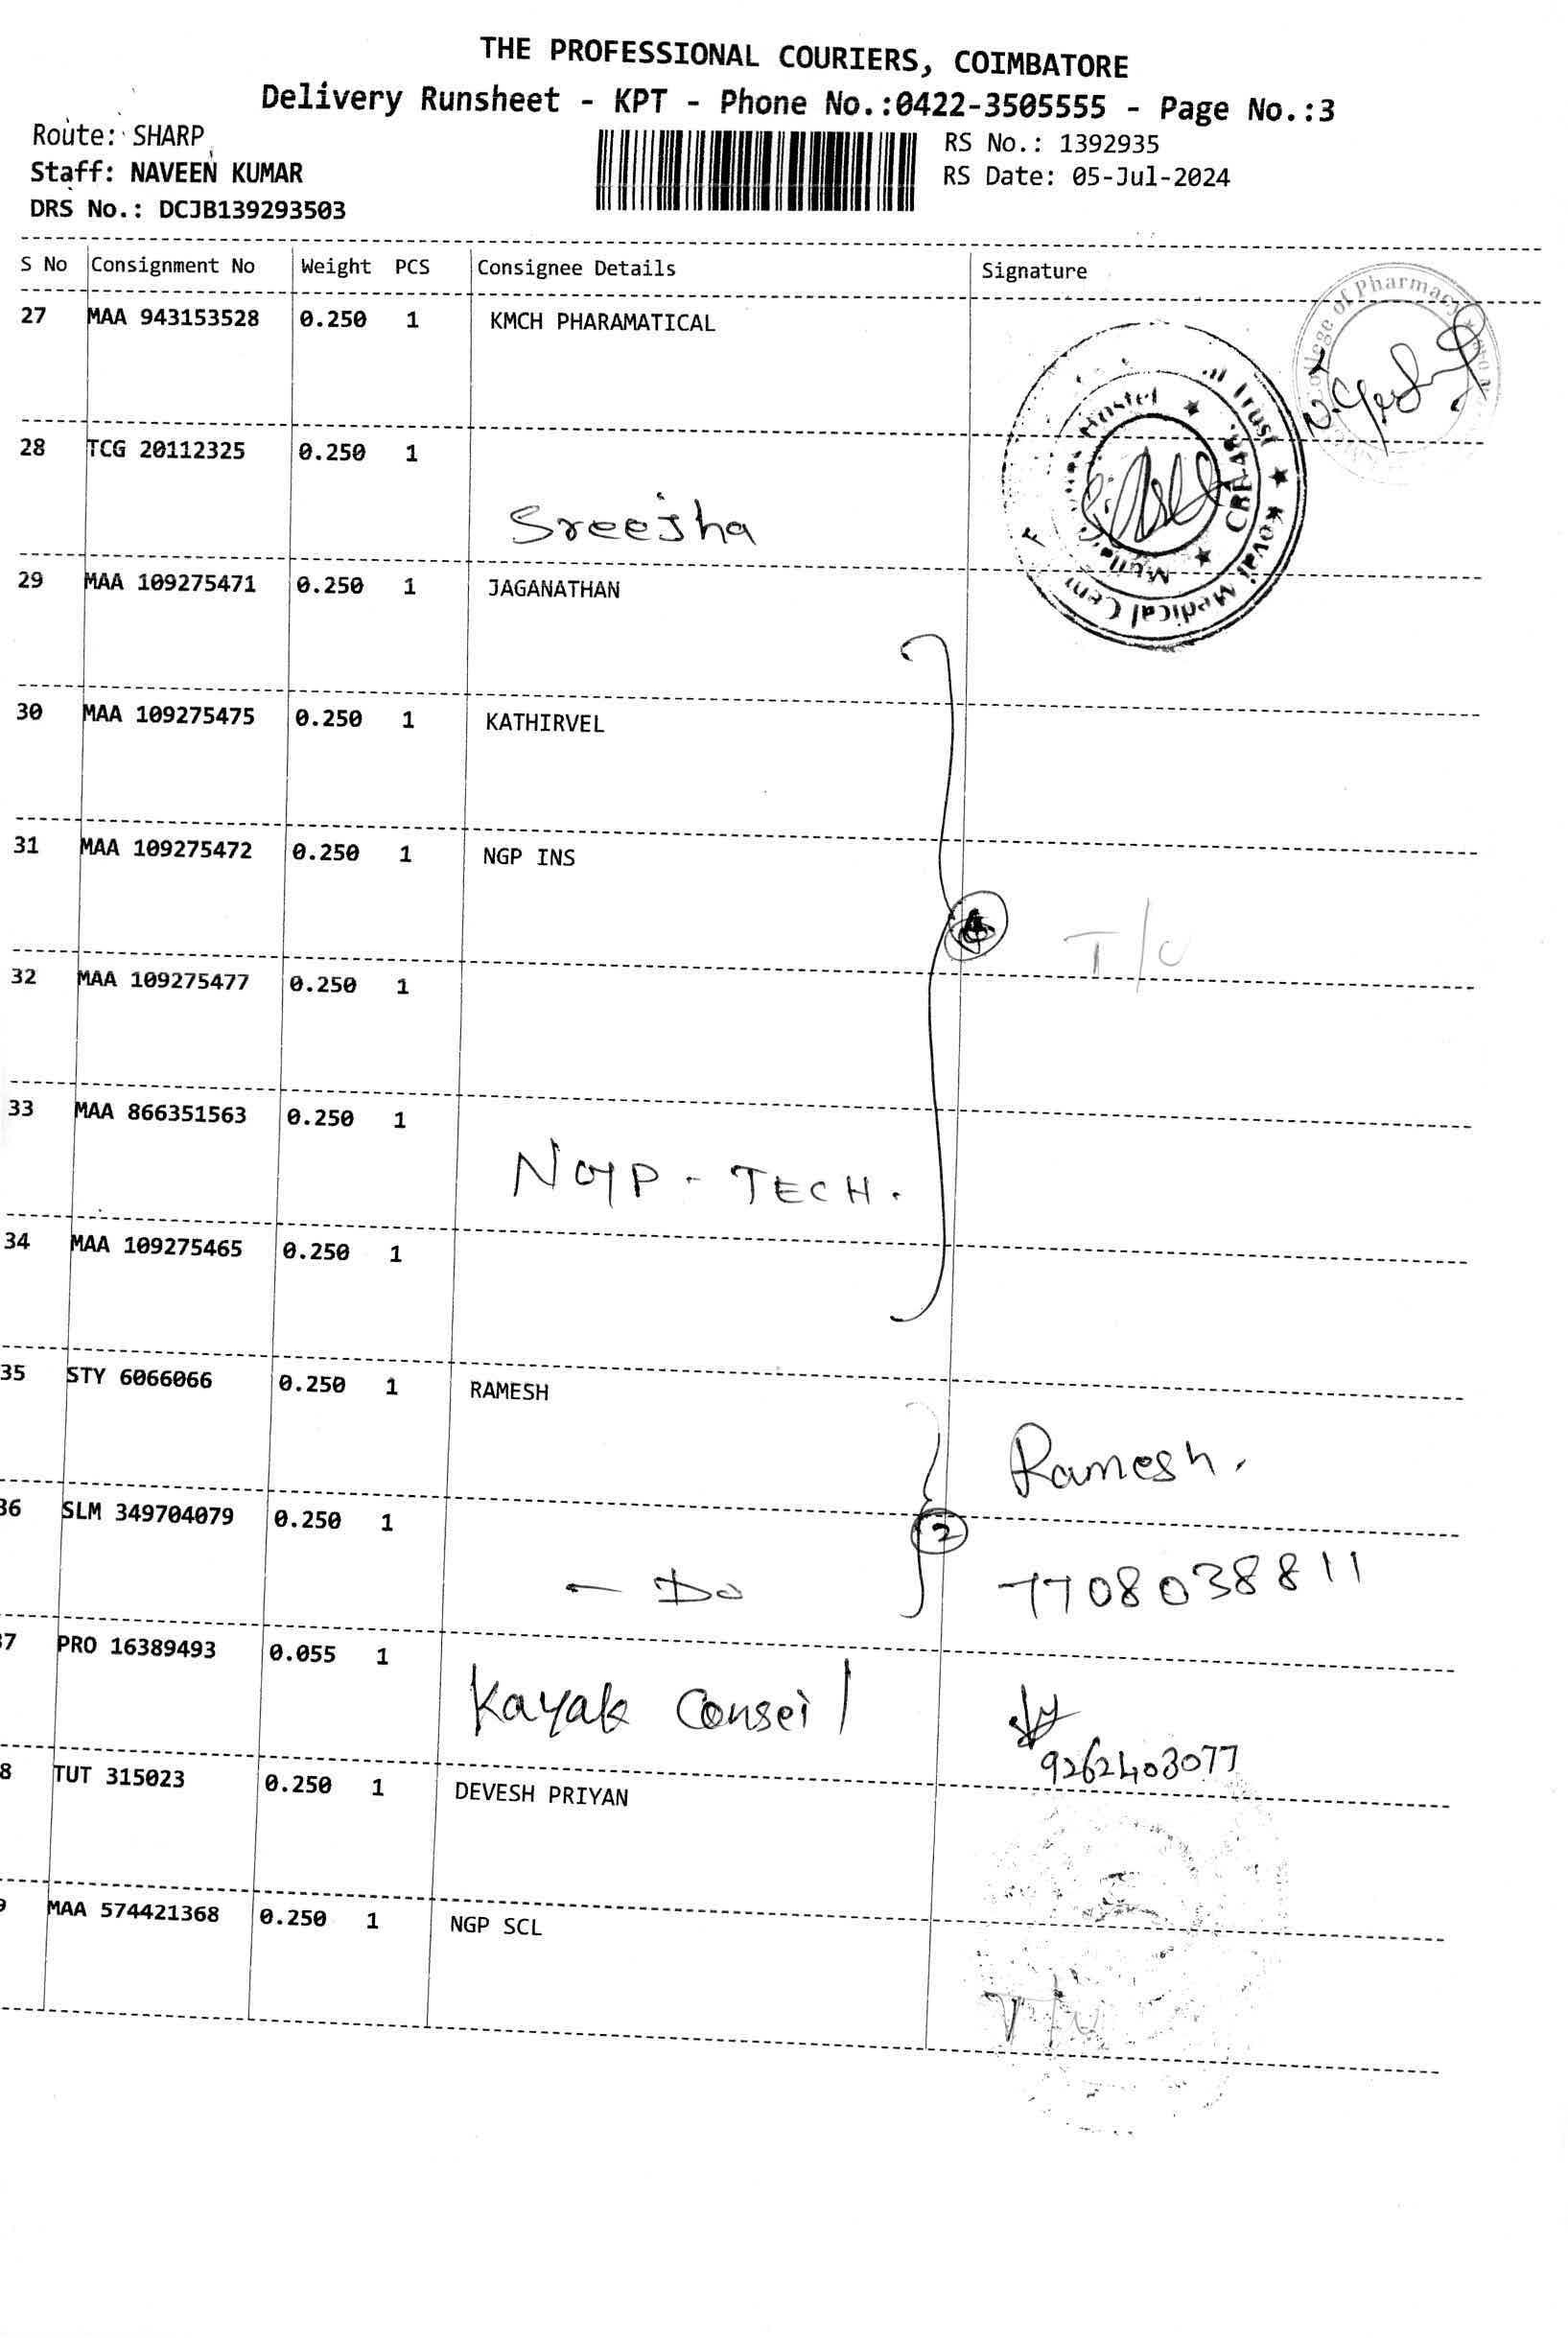 THE PROFESSIONAL COURIERS, COIMBATORE
Delivery Runsheet - KPT - Phone No.:0422-3505555 - Page No.:3
Route: SHARP
RS No.: 1392935
Staff: NAVEEN KUMAR
RS Date: 05-Jul-2024
DRS No.: DCJB139293503
S No Consignment No Weight PCS Consignee Details Signature
27 MAA 943153528 0.250 1 KMCH PHARAMATICAL
College of Pharmacy
28 TCG 20112325 0.250 1
Sreejsha
Hostel
Trust ★ Kovai Medical Cen
29 MAA 109275471 0.250 1 JAGANATHAN
30 MAA 109275475 0.250 1 KATHIRVEL
31 MAA 109275472 0.250 1 NGP INS
T/C
32 MAA 109275477 0.250 1
33 MAA 866351563 0.250 1
NGP - TECH.
34 MAA 109275465 0.250 1
35 STY 6066066 0.250 1 RAMESH
Ramesh.
36 SLM 349704079 0.250 1
2
- Do
7708038811
37 PRO 16389493 0.055 1
Kayak Conseil
9262403077
8 TUT 315023 0.250 1 DEVESH PRIYAN
9 MAA 574421368 0.250 1 NGP SCL